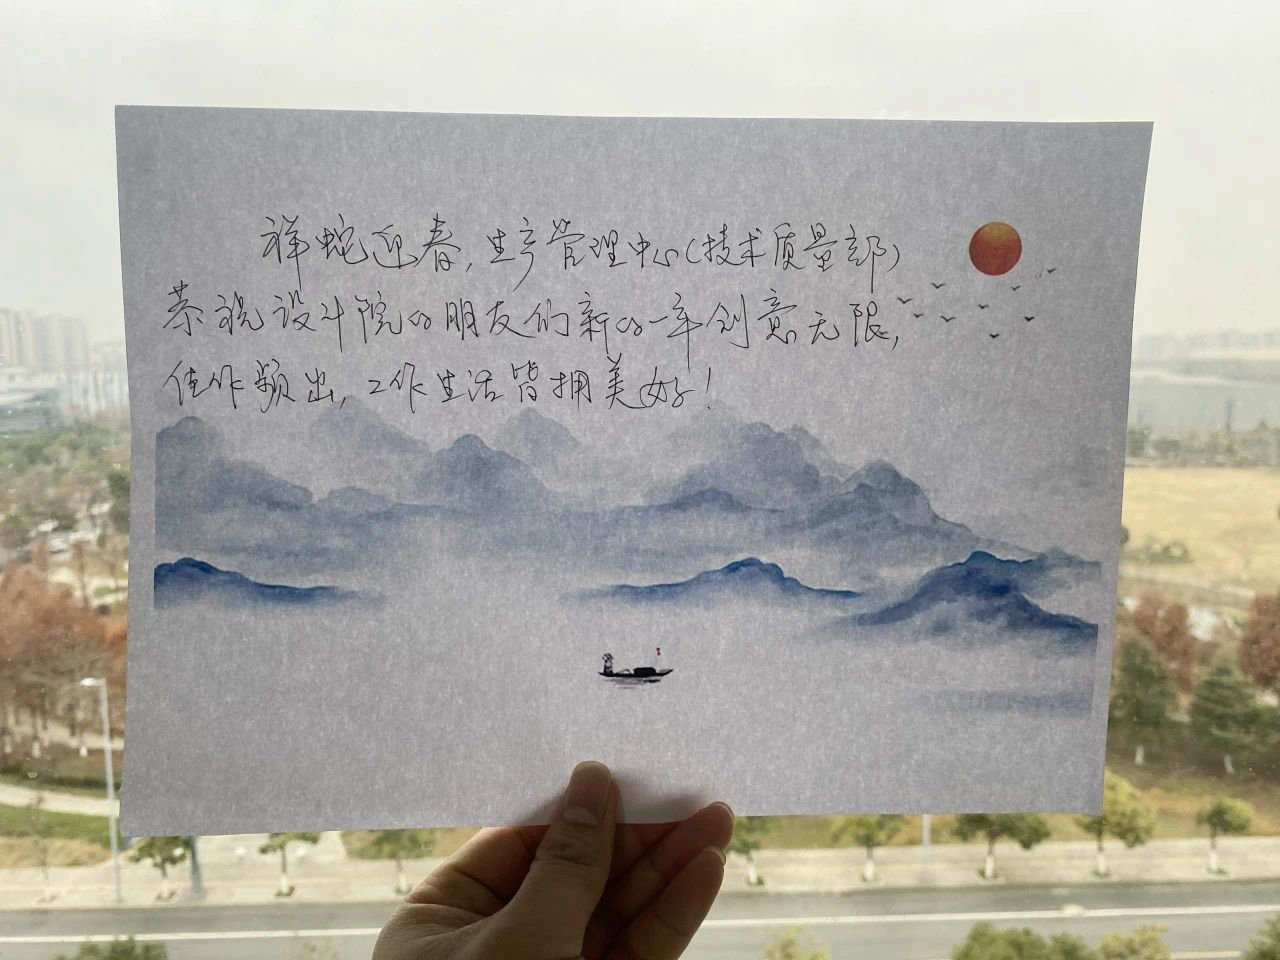 祥蛇迎春,生产管理中心(技术质量部)
恭祝设计院的朋友们新的一年创意无限,
佳作频出,工作生活皆拥美好!